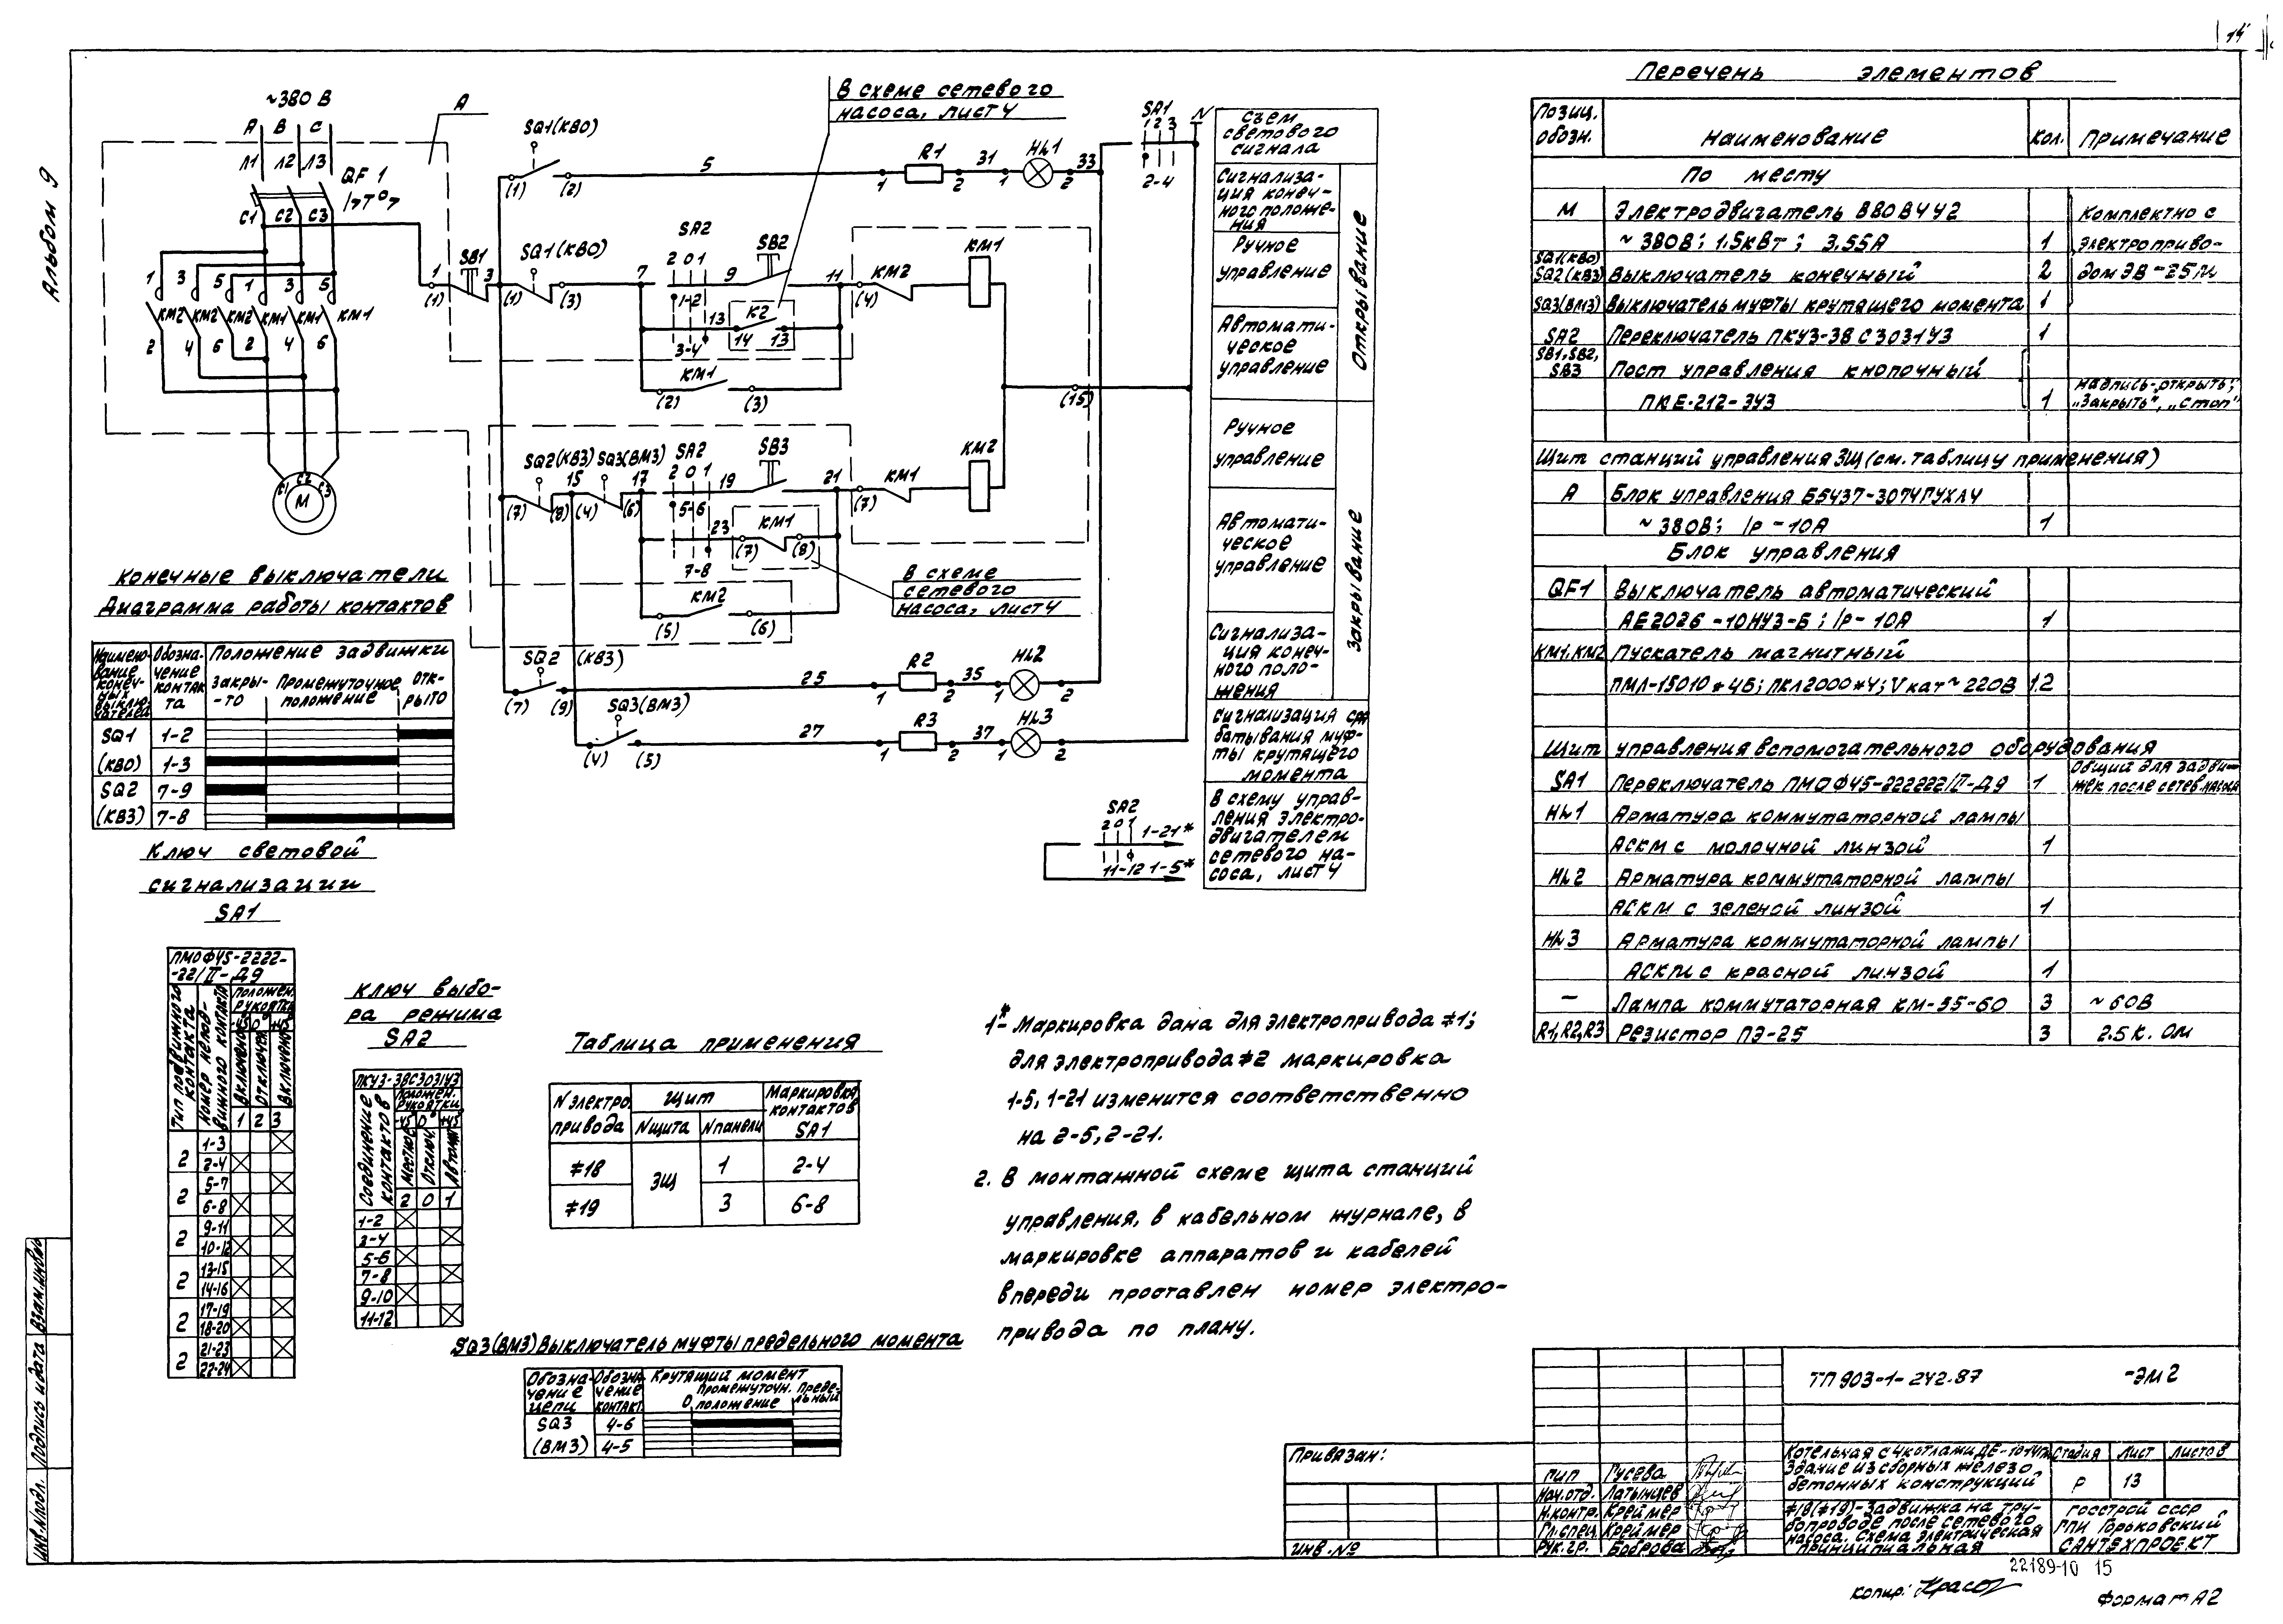 14
Альбом 9
~380 В
А В С
Л1 Л2 Л3
QF1
С1 С2 С3
А
1 3 5 1 3 5
КМ2 КМ2 КМ2 КМ1 КМ1 КМ1
2 4 6 2 4 6
С1 С2 С3
М
В схеме сетевого
насоса, лист 4
SQ1(КВО)
(1) (2)
5
R1
1 2
31
HL1
1 2
33
SA1
1 2 3
2-4
N
SB1
1 3
(1)
SQ1(КВО)
(1) (3)
7
SA2
2 0 1
1-2
9
SB2
11
(4)
КМ2
КМ1
3-4
13
К2
14 13
КМ1
(2) (3)
(15)
SQ2(КВЗ) SQ3(ВМЗ)
15 17
(7) (8) (4) (6)
SA2
2 0 1
5-6
19
SB3
21
(7)
КМ1
КМ2
7-8
23
КМ1
(7) (8)
КМ2
(5) (6)
В схеме
сетевого
насоса, лист 4
SQ2 (КВЗ)
(7) (9)
25
R2
1 2
35
HL2
1 2
SQ3(ВМЗ)
(4) (5)
27
R3
1 2
37
HL3
1 2
SA2
2 0 1
1-21*
11-12 1-5*
Съем
светового
сигнала
Сигнализа-
ция конеч-
ного положе-
ния
Ручное
управление
Автомати-
ческое
управление
Открывание
Ручное
управление
Автомати-
ческое
управление
Сигнализа-
ция конеч-
ного поло-
жения
Закрывание
Сигнализация сра
батывания муф-
ты крутящего
момента
В схему управ-
ления электро-
двигателем
сетевого на-
соса, лист 4
Конечные выключатели
Диаграмма работы контактов
Наимено-
вание
конеч-
ных
выклю-
чателей
Обозна-
чение
контак
та
Положение задвижки
закры-
-то
Промежуточное
положение
отк-
рыто
SQ1 1-2
(КВО) 1-3
SQ2 7-9
(КВЗ) 7-8
Ключ световой
сигнализации
SA1
ПМОФ45-2222-
-22/II-Д9
Тип подвижного
контакта
Номер непод-
вижного контакта
Положен.
рукоятки
-45° 0° +45°
Включено
Отключен
Включено
1 2 3
2 1-3
2-4
2 5-7
6-8
2 9-11
10-12
2 13-15
14-16
2 17-19
18-20
2 21-23
22-24
Ключ выбо-
ра режима
SA2
ПКУ3-38С3031У3
Соединение
контактов
Положен.
рукоятки
-45 0° +45
Местное
Отключ.
Автомат
2 0 1
1-2
3-4
5-6
7-8
9-10
11-12
Таблица применения
N электро
привода
Щит
N щита N панели
Маркировка
контактов
SA1
#18 3Щ 1 2-4
#19 3 6-8
SQ3(ВМЗ) Выключатель муфты предельного момента
Обозна-
чение
цепи
Обозна
чение
контакт.
Крутящий момент
0
Промежуточн.
положение
Преде-
льный
SQ3 4-6
(ВМЗ) 4-5
1* Маркировка дана для электропривода #1;
для электропривода #2 маркировка
1-5, 1-21 изменится соответственно
на 2-5, 2-21.
2. В монтажной схеме щита станций
управления, в кабельном журнале, в
маркировке аппаратов и кабелей
впереди проставлен номер электро-
привода по плану.
Перечень элементов
Позиц.
обозн.
Наименование Кол. Примечание
По месту
М Электродвигатель В80В4У2 Комплектно с
~380В; 1.5кВт; 3.55А 1 электроприво-
SQ1(КВО)
SQ2(КВЗ) Выключатель конечный 2 дом ЭВ-25М
SQ3(ВМЗ) Выключатель муфты крутящего момента 1
SA2 Переключатель ПКУ3-38С3031У3 1
SB1, SB2,
SB3 Пост управления кнопочный
ПКЕ-212-3У3 1
надпись-„открыть”;
„Закрыть”, „Стоп”
Щит станций управления 3Щ (см. таблицу применения)
А Блок управления Б5437-3074ГУХЛ4
~380В; Iр-10А 1
Блок управления
QF1 Выключатель автоматический
АЕ2026-10НУ3-Б; Iр-10А 1
КМ1, КМ2 Пускатель магнитный
ПМЛ-15010*4Б; ПКЛ2000*4; V кат ~220В 1.2
Щит управления вспомогательного оборудования
SA1 Переключатель ПМОФ45-222222/II-Д9 1 Общий для задви-
жек после сетев.насоса
HL1 Арматура коммутаторной лампы
АСКМ с молочной линзой 1
HL2 Арматура коммутаторной лампы
АСКМ с зеленой линзой 1
HL3 Арматура коммутаторной лампы
АСКМ с красной линзой 1
— Лампа коммутаторная КМ-35-60 3 ~60В
R1,R2,R3 Резистор ПЭ-25 3 2.5 к. Ом
Привязан:
Инв.№
ТП 903-1-242.87 -ЭМ2
ГИП Гусева
Нач.отд. Латынцев
Н.контр. Креймер
Гл.спец. Креймер
Рук.гр. Боброва
Котельная с 4 котлами ДЕ-10-14ГМ
Здание из сборных железо
бетонных конструкций
Стадия Лист Листов
Р 13
#18(#19)-Задвижка на тру-
бопроводе после сетевого
насоса. Схема электрическая
принципиальная
Госстрой СССР
ГПИ Горьковский
САНТЕХПРОЕКТ
22189-10 15
Копир:
Формат А2
Инв.№подл. Подпись и дата Взам.инв№